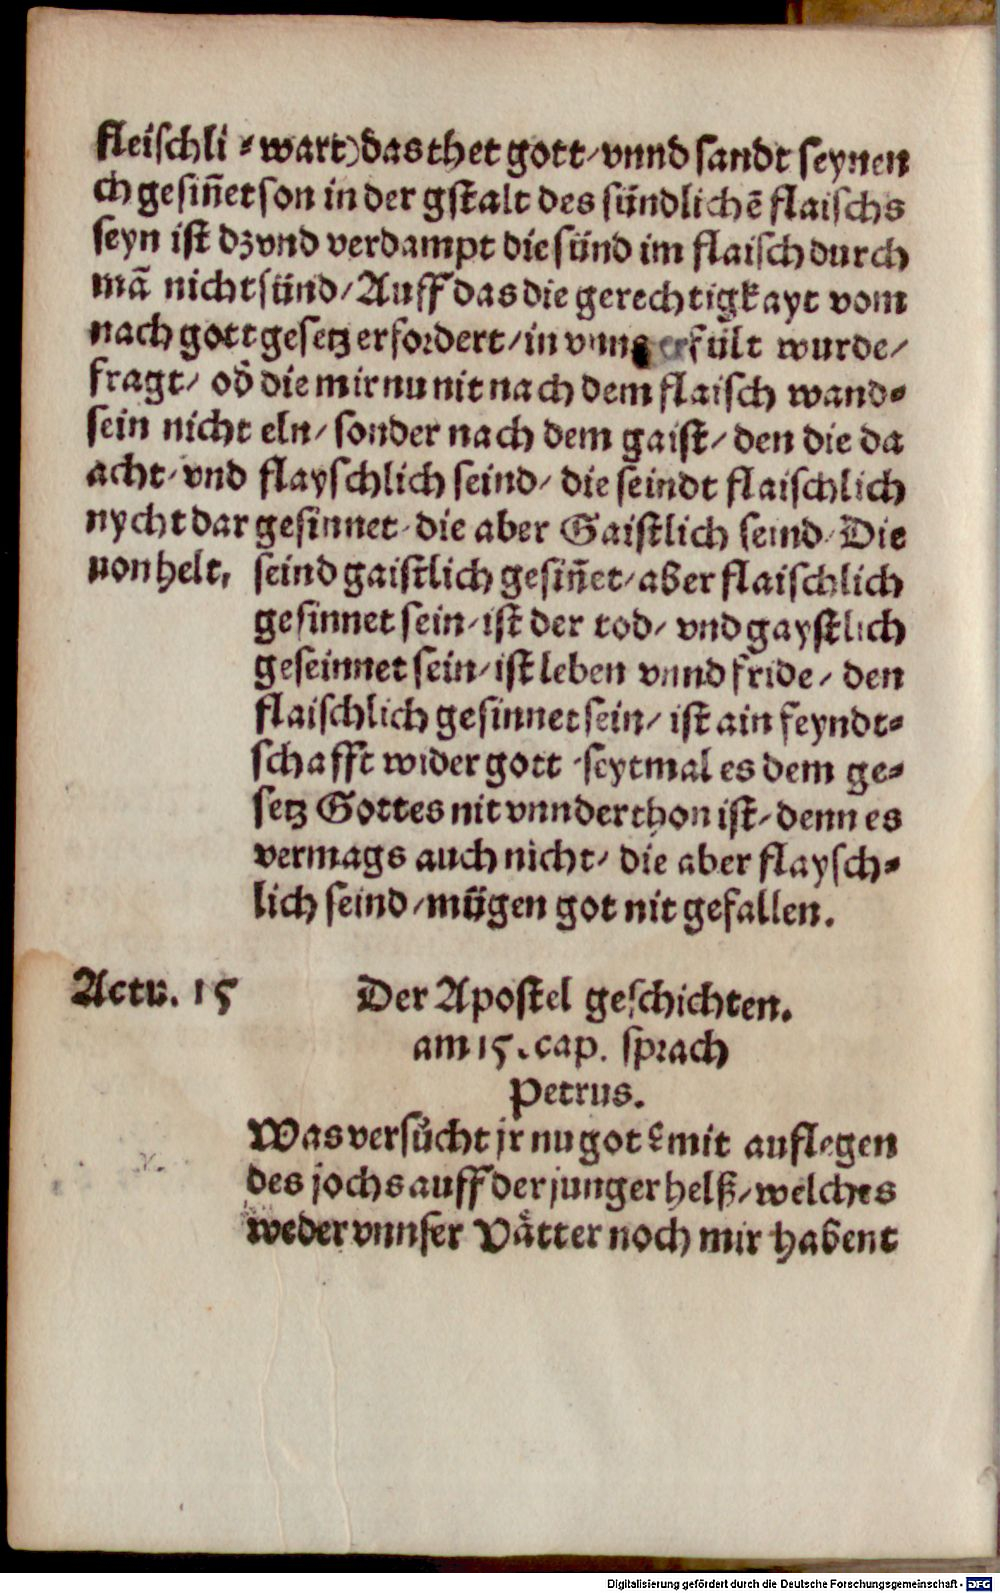 fleischli⸗
ch gesiñet
seyn ist dz
mã nicht
nach gott
fragt/ oď
sein nicht
acht/ vnd
nycht dar
uon helt,
wart) das thet gott/ vnnd sandt seynen
son in der gstalt des sündlichẽ flaischs
vnd verdampt die sünd im flaisch durch
sünd/ Auff das die gerechtigkayt vom
gesetz erfordert/ in vnns erfült wurde/
die mir nu nit nach dem flaisch wand⸗
eln/ sonder nach dem gaist/ den die da
flayschlich seind/ die seindt flaischlich
gesinnet/ die aber Gaistlich seind/ Die
seind gaistlich gesiñet/ aber flaischlich
gesinnet sein/ ist der tod/ vnd gaystlich
geseinnet sein/ ist leben vnnd fride/ den
flaischlich gesinnet sein/ ist ain feyndt⸗
schafft wider gott/ seytmal es dem ge⸗
setz Gottes nit vnnderthon ist/ denn es
vermags auch nicht/ die aber flaysch⸗
lich seind/ mügen got nit gefallen.
Actu. 15
Der Apostel geschichten.
am 15. cap. sprach
Petrus.
Was versůcht jr nu got mit auflegen
des jochs auff der junger helß/ welches
weder vnnser Våtter noch mir habent
Digitalisierung gefördert durch die Deutsche Forschungsgemeinschaft - DFG